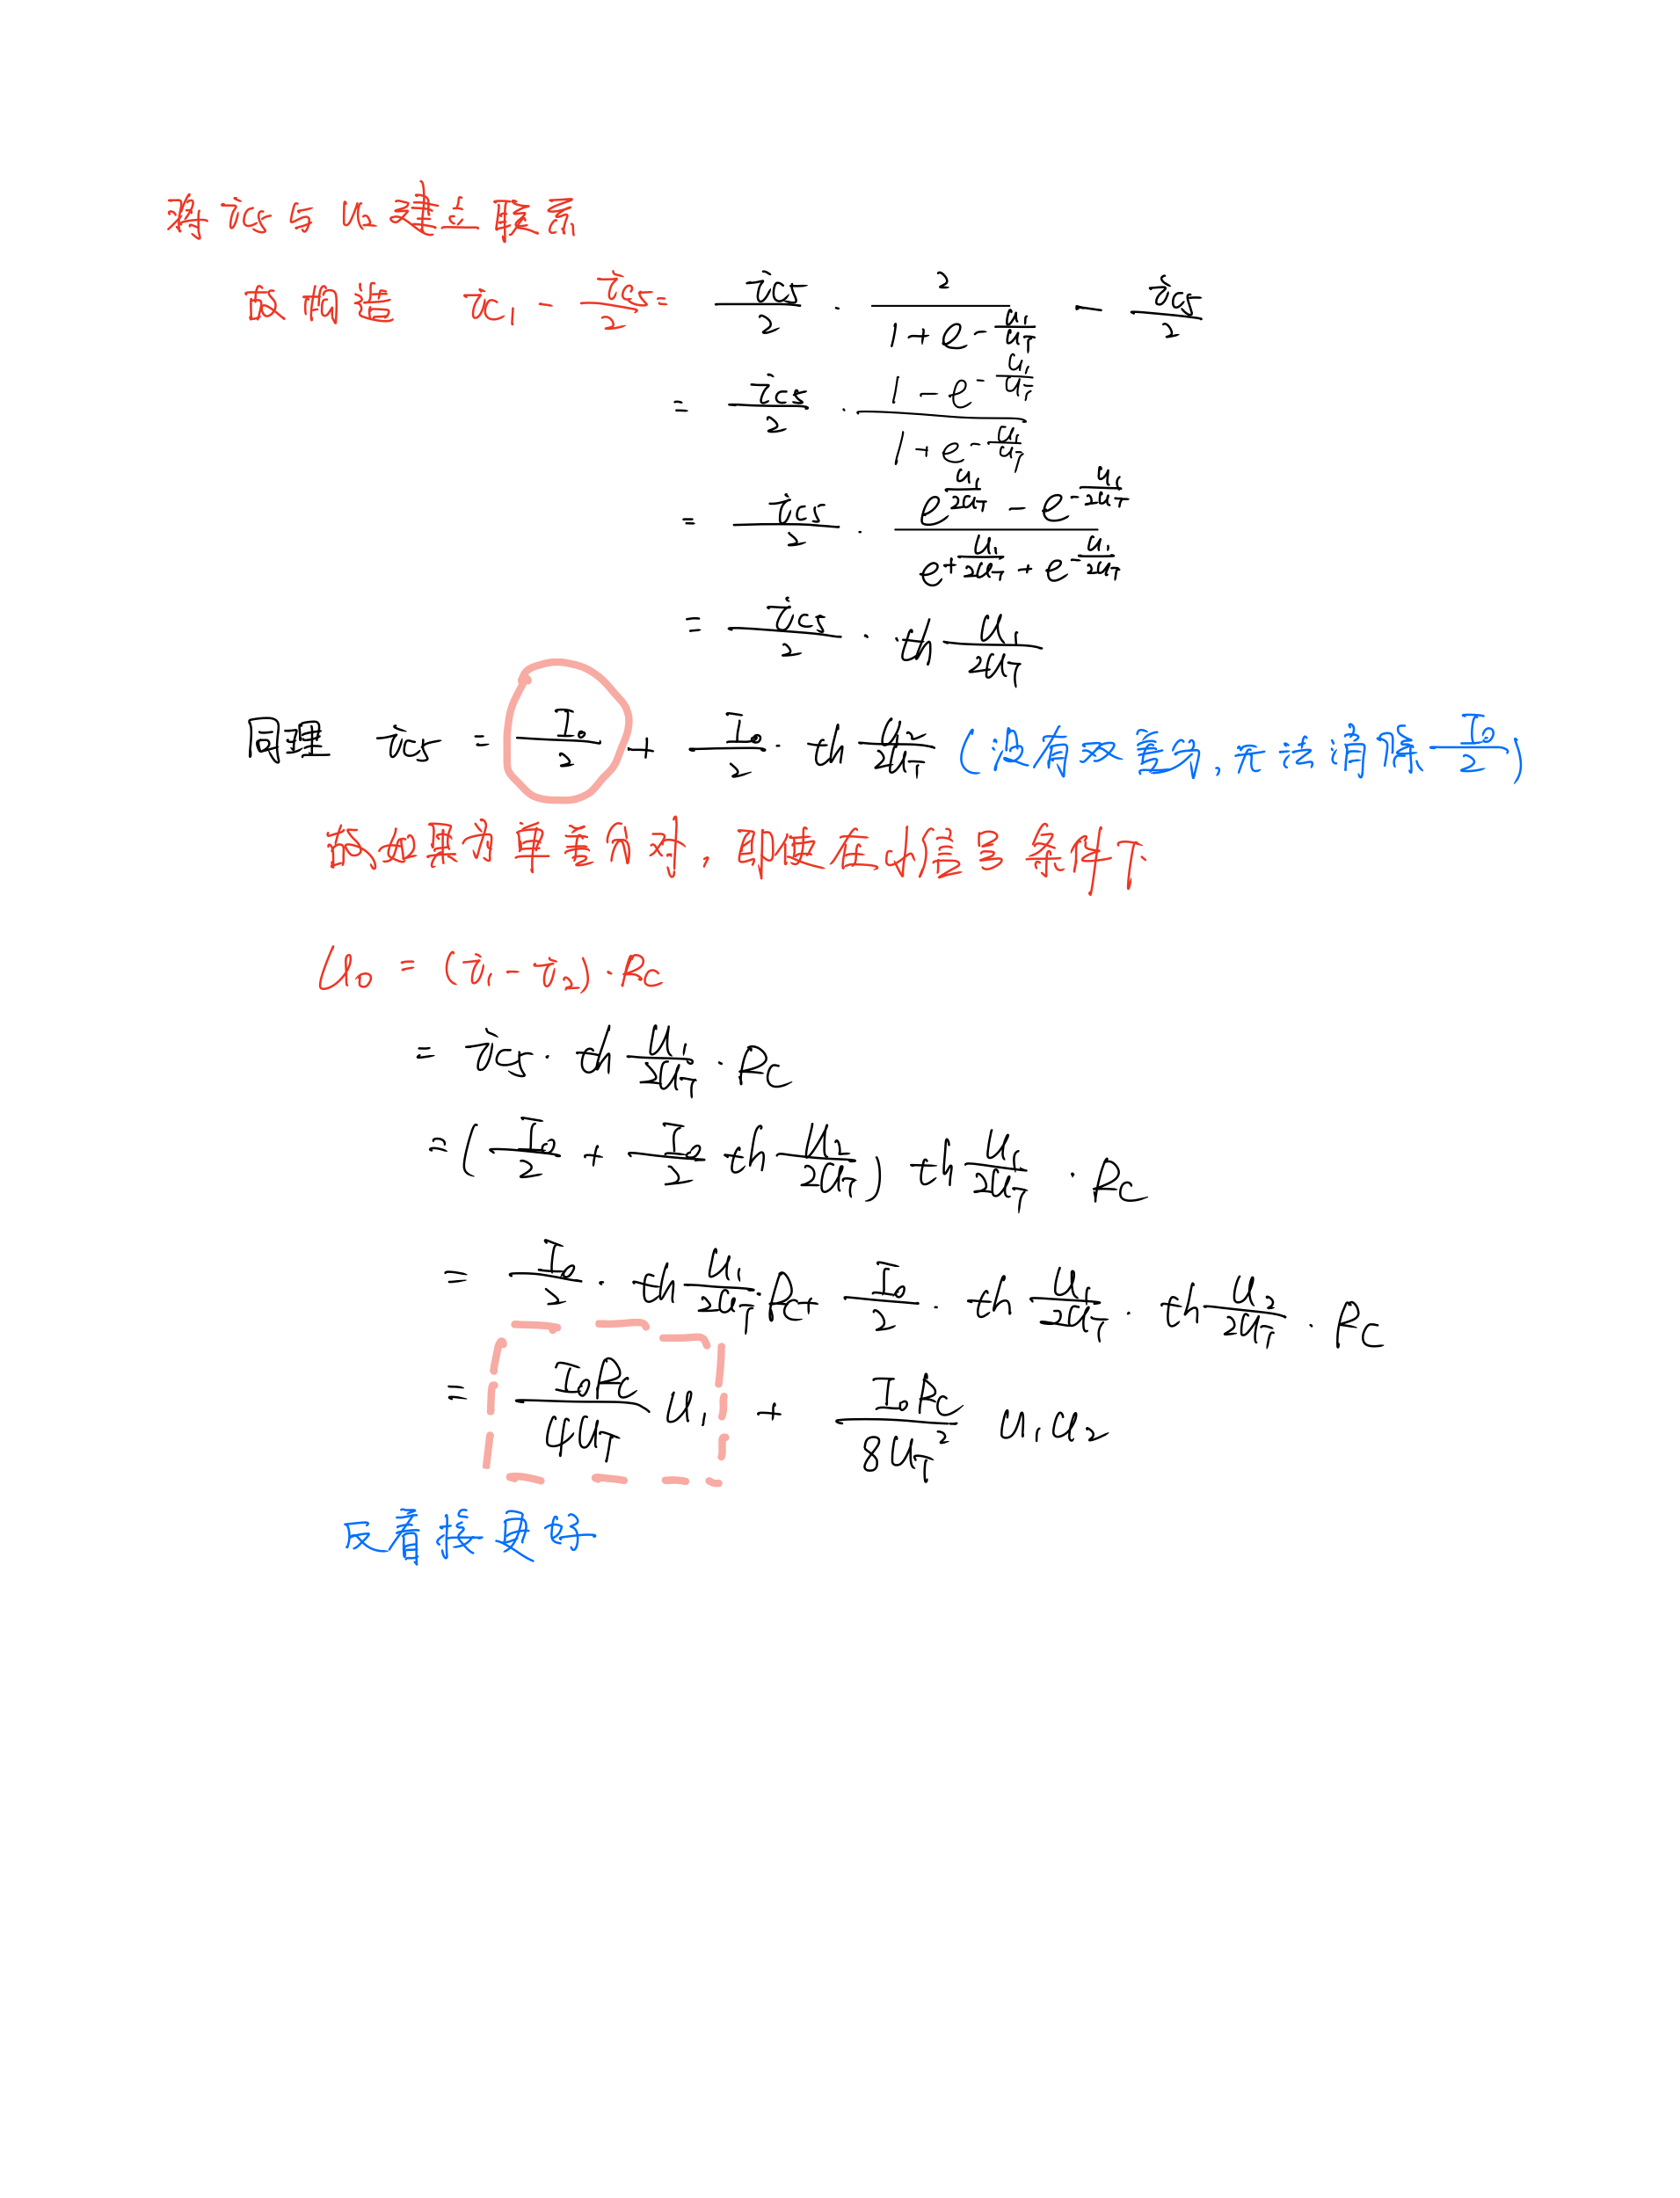 将 ic5 与 u2 建立联系
故构造 ic1 - ic5/2 = ic5/2 · 2/(1+e^(-u1/uT)) - ic5/2
= ic5/2 · (1-e^(-u1/uT))/(1+e^(-u1/uT))
= ic5/2 · (e^(u1/2uT) - e^(-u1/2uT))/(e^(+u1/2uT) + e^(-u1/2uT))
= ic5/2 · th u1/2uT
同理 ic5 = I0/2 + I0/2 · th u2/2uT (没有双差分,无法消除 I0/2)
故如果为单差分对,即使在小信号条件下
u0 = (i1 - i2)·Rc
= ic5 · th u1/2uT · Rc
= (I0/2 + I0/2 th u2/2uT) th u1/2uT · Rc
= I0/2 · th u1/2uT · Rc + I0/2 · th u1/2uT · th u2/2uT · Rc
= I0Rc/4uT u1 + I0Rc/8uT² u1u2
反着接更好